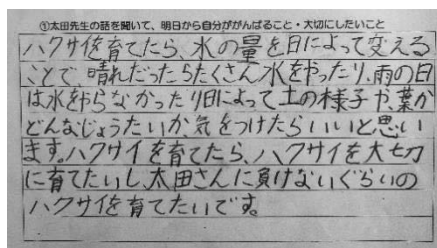 ①太田先生の話を聞いて、明日から自分ががんばること・大切にしたいこと
ハクサイを育てたら、水の量を日によって変える
ことで晴れだったらたくさん水をやったり、雨の日
は水をやらなかったり日によって土の様子や、葉が
どんなじょうたいか気をつけたらいいと思い
ます。ハクサイを育てたら、ハクサイを大切
に育てたいし、太田さんに負けないぐらいの
ハクサイを育てたいです。